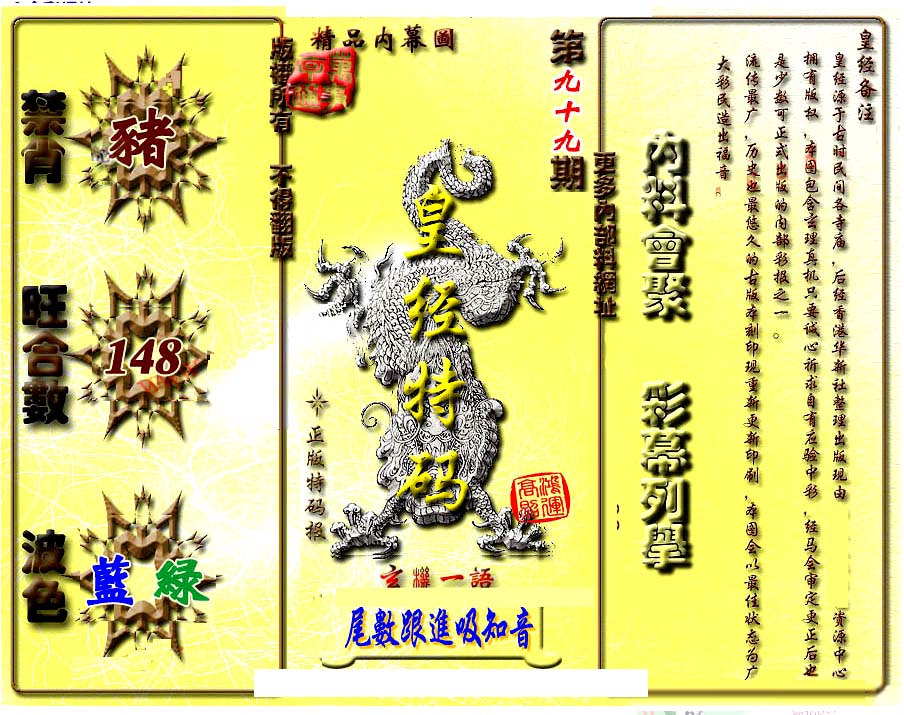 精品内幕圖
第九十九期
版權所有 不得翻版
更多內部料網址
皇经特码
正版特码报
鴻運高照
玄機一語
尾數跟進吸知音
禁肖
豬
旺合數
148
波色
藍 綠
内料會聚 彩幕列舉
皇经备注
皇经源于古时民间各寺庙，后经香港华新社整理出版现由 资源中心
拥有版权，本图包含玄理真机只要诚心祈求自有应验中彩，经马会审定更正后也
是少数可正式出版的内部彩报之一。
流传最广，历史也最悠久的古版本刻印现重新更新印刷，本图会以最佳状态为广
大彩民造出福音